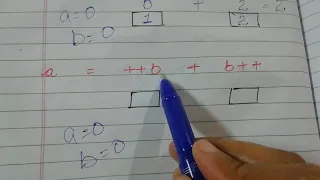 a=0 0 + 2 = 2
b=0 1 2
a = ++b + b++
a=0
b=0